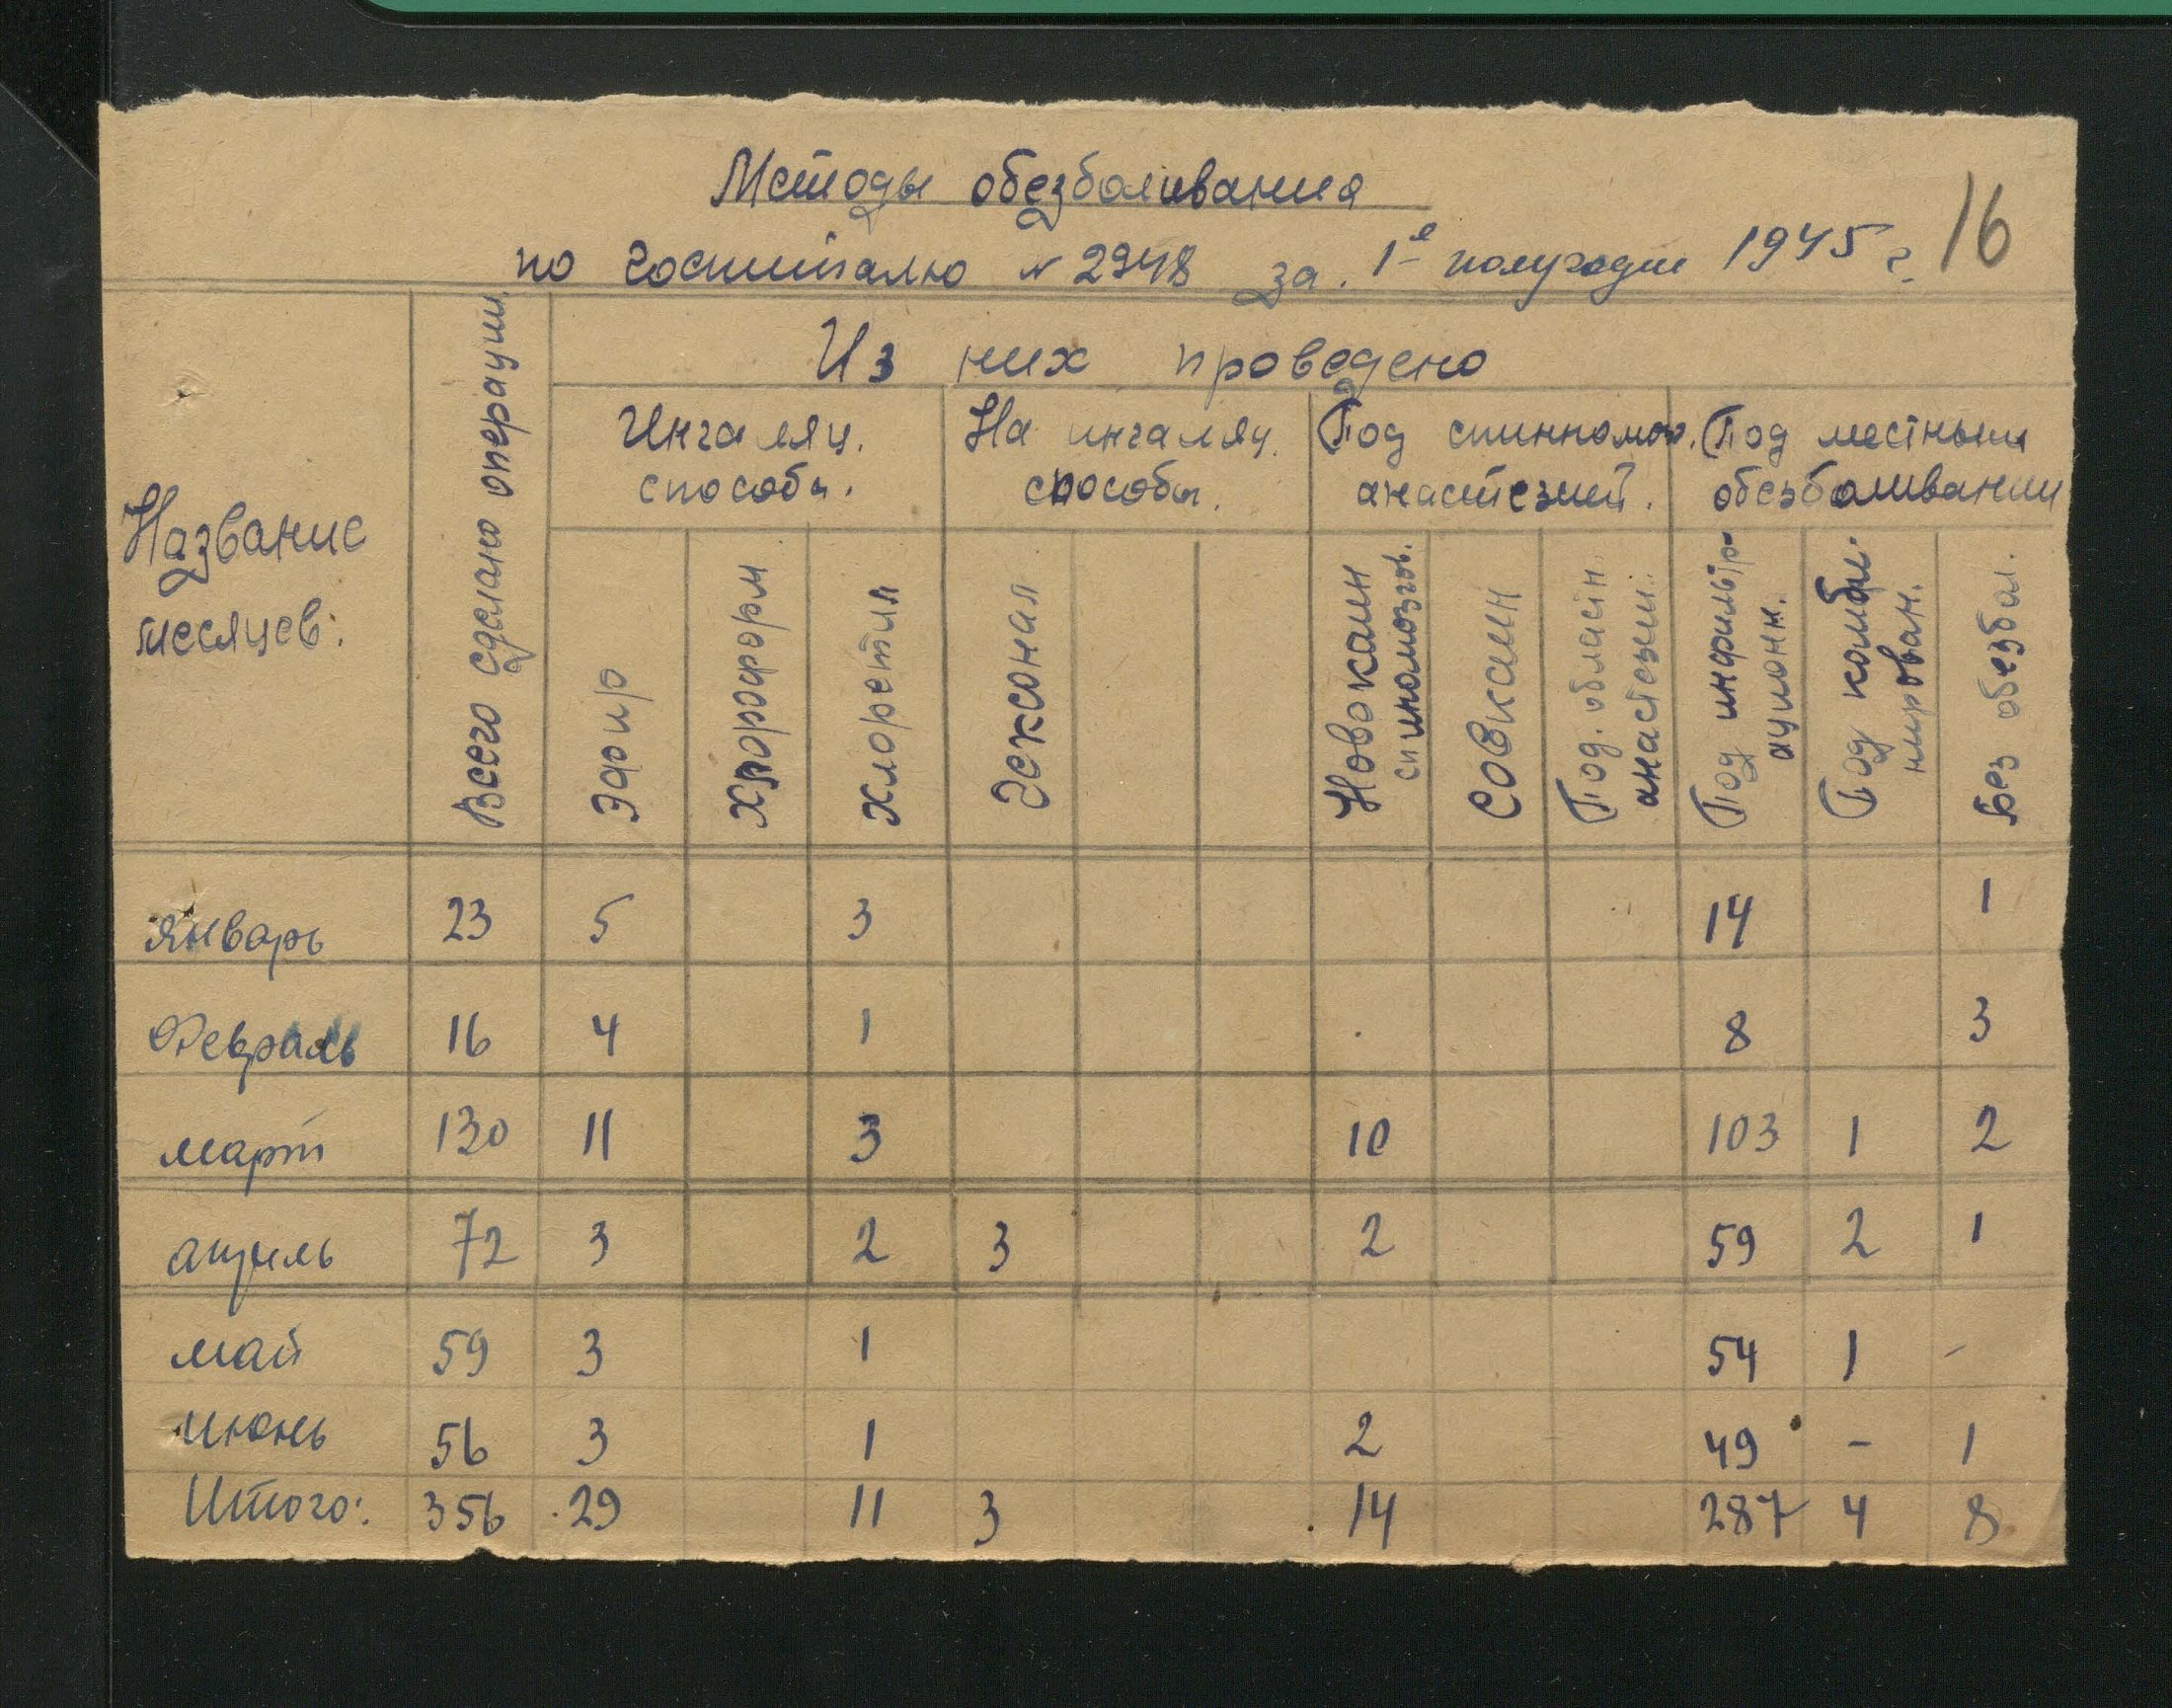 Методы обезболивания
по госпиталю № 2948 за 1е полугодие 1945 г.
16
Название месяцев:
Всего сделано операции.
Из них проведено
Ингаляц. способы.
На ингаляц. способы.
Под спинномоз. анастезией.
Под местным обезболивании
Эфир
Хлороформ
Хлоретил
Эксонал
Новокаин спиномозгов.
Совкаин
Под. областн. анастезии.
Под инфильтр-ационн.
Под комби-нирован.
Без обезбол.
Январь 23 5 3 14 1
Февраль 16 4 1 8 3
март 130 11 3 10 103 1 2
апрель 72 3 2 3 2 59 2 1
май 59 3 1 54 1 -
июнь 56 3 1 2 49 - 1
Итого: 356 29 11 3 14 287 4 8